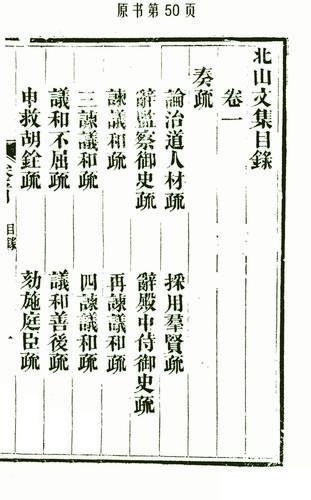 原书第50页
北山文集目錄
卷一
奏疏
論治道人材疏 採用羣賢疏
辭監察御史疏 辭殿中侍御史疏
諫議和疏 再諫議和疏
三諫議和疏 四諫議和疏
議和不屈疏 議和善後疏
申救胡銓疏 劾施庭臣疏
目錄
一